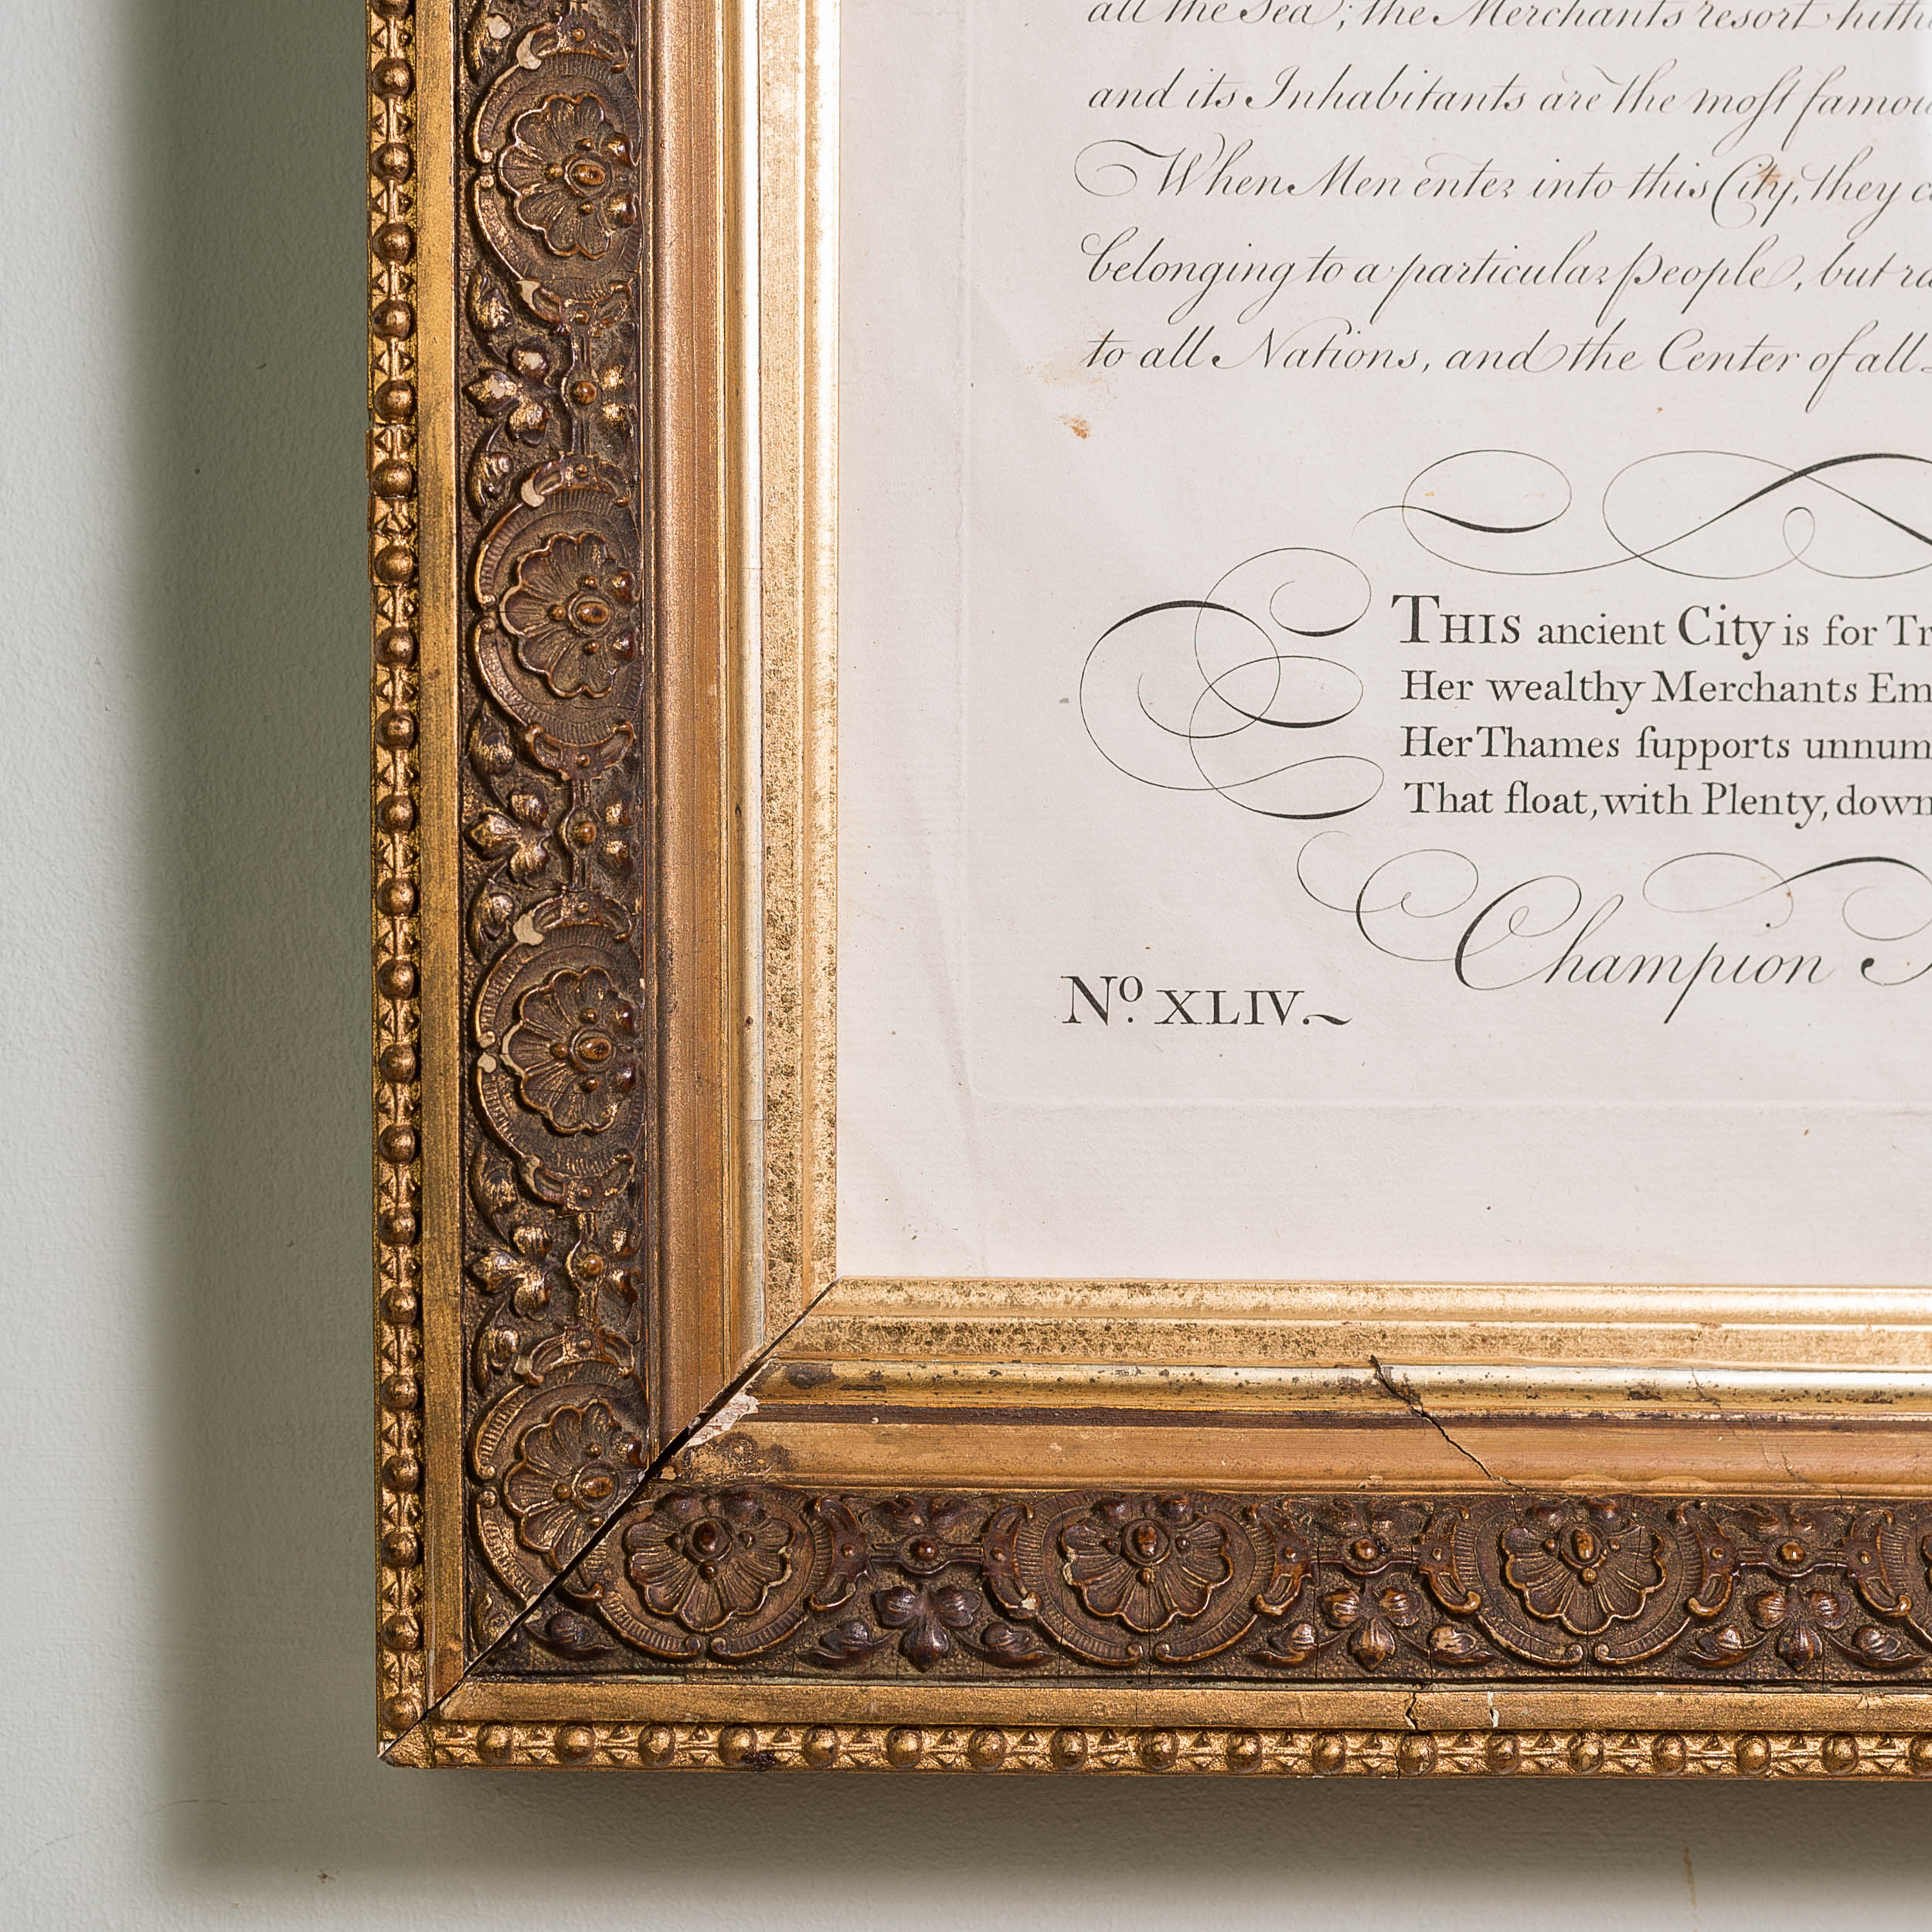 all the Sea; the Merchants resort
and its Inhabitants are the moſt
When Men enter into this City, they
belonging to a particular people, but
to all Nations, and the Center of all
THIS ancient City is for
Her wealthy Merchants
Her Thames ſupports
That float, with Plenty, down
Champion
No. XLIV.